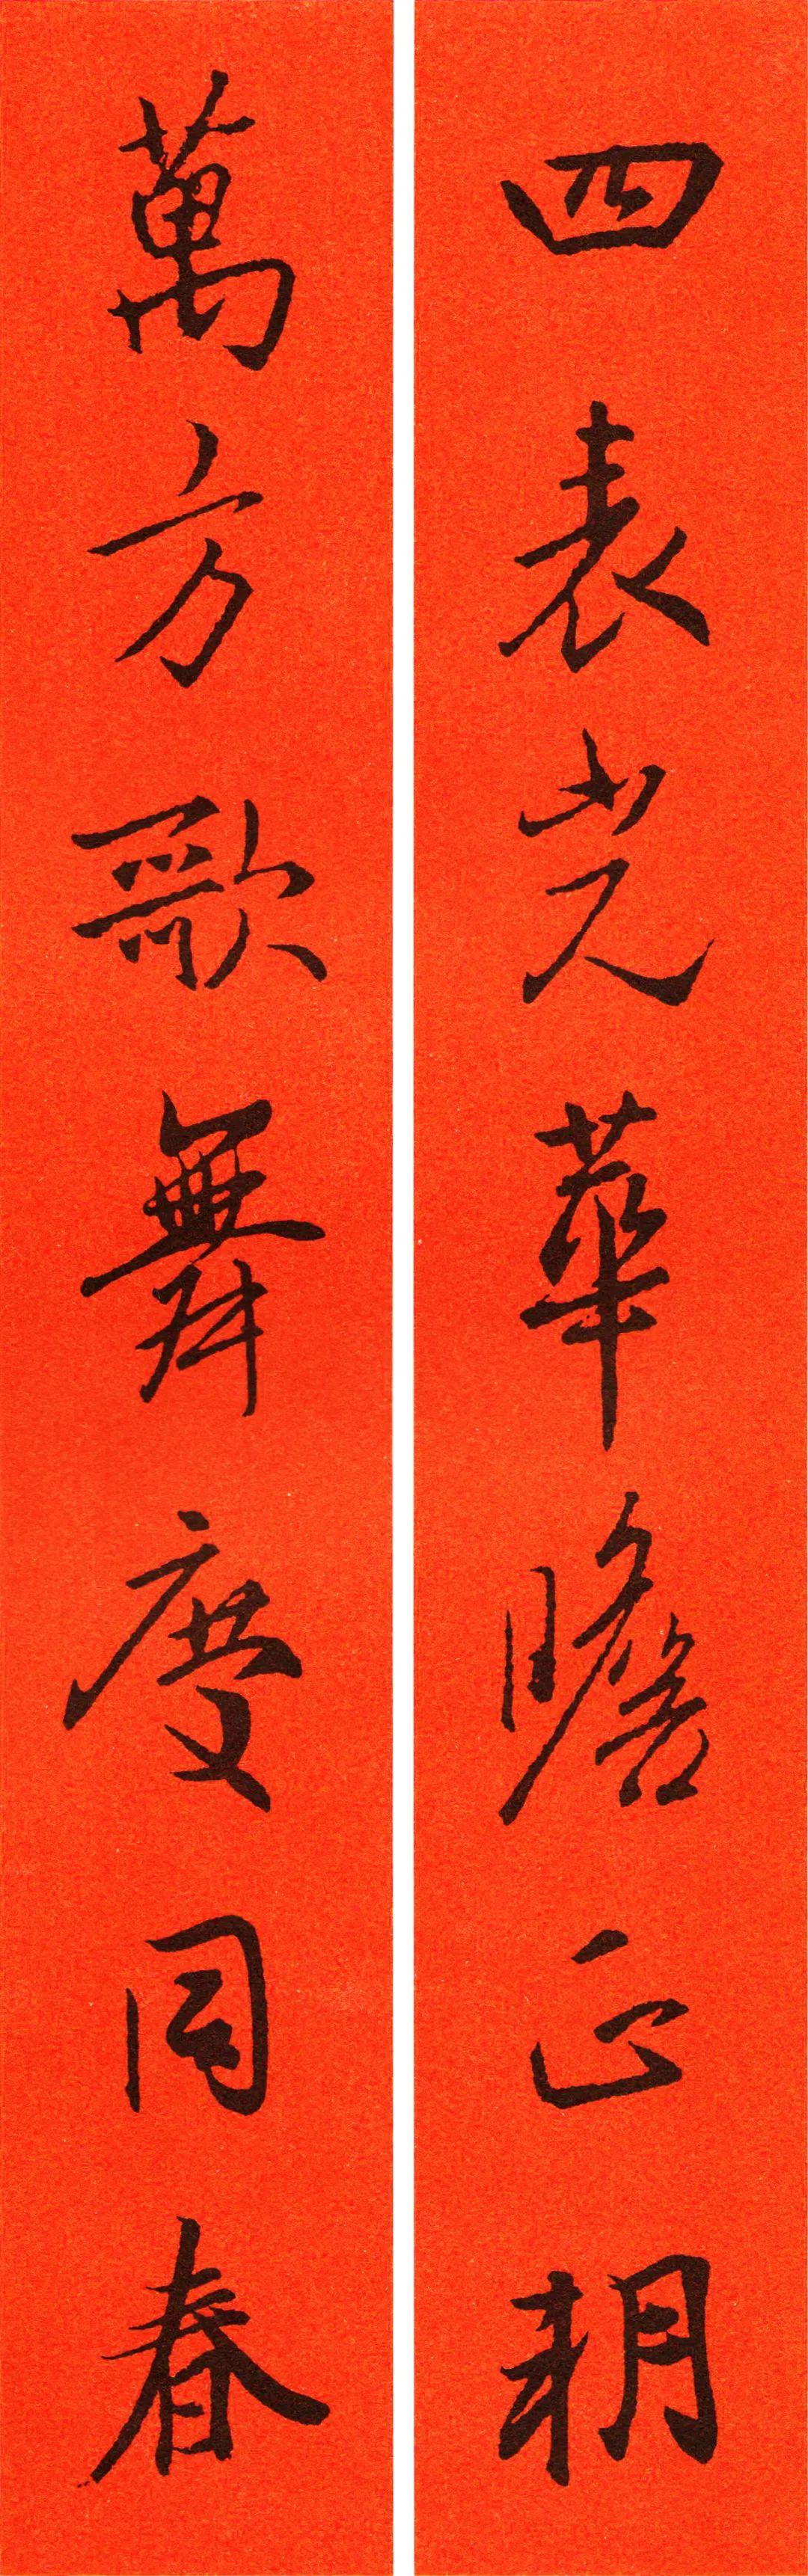 四表光華瞻正朔
萬方歌舞慶同春